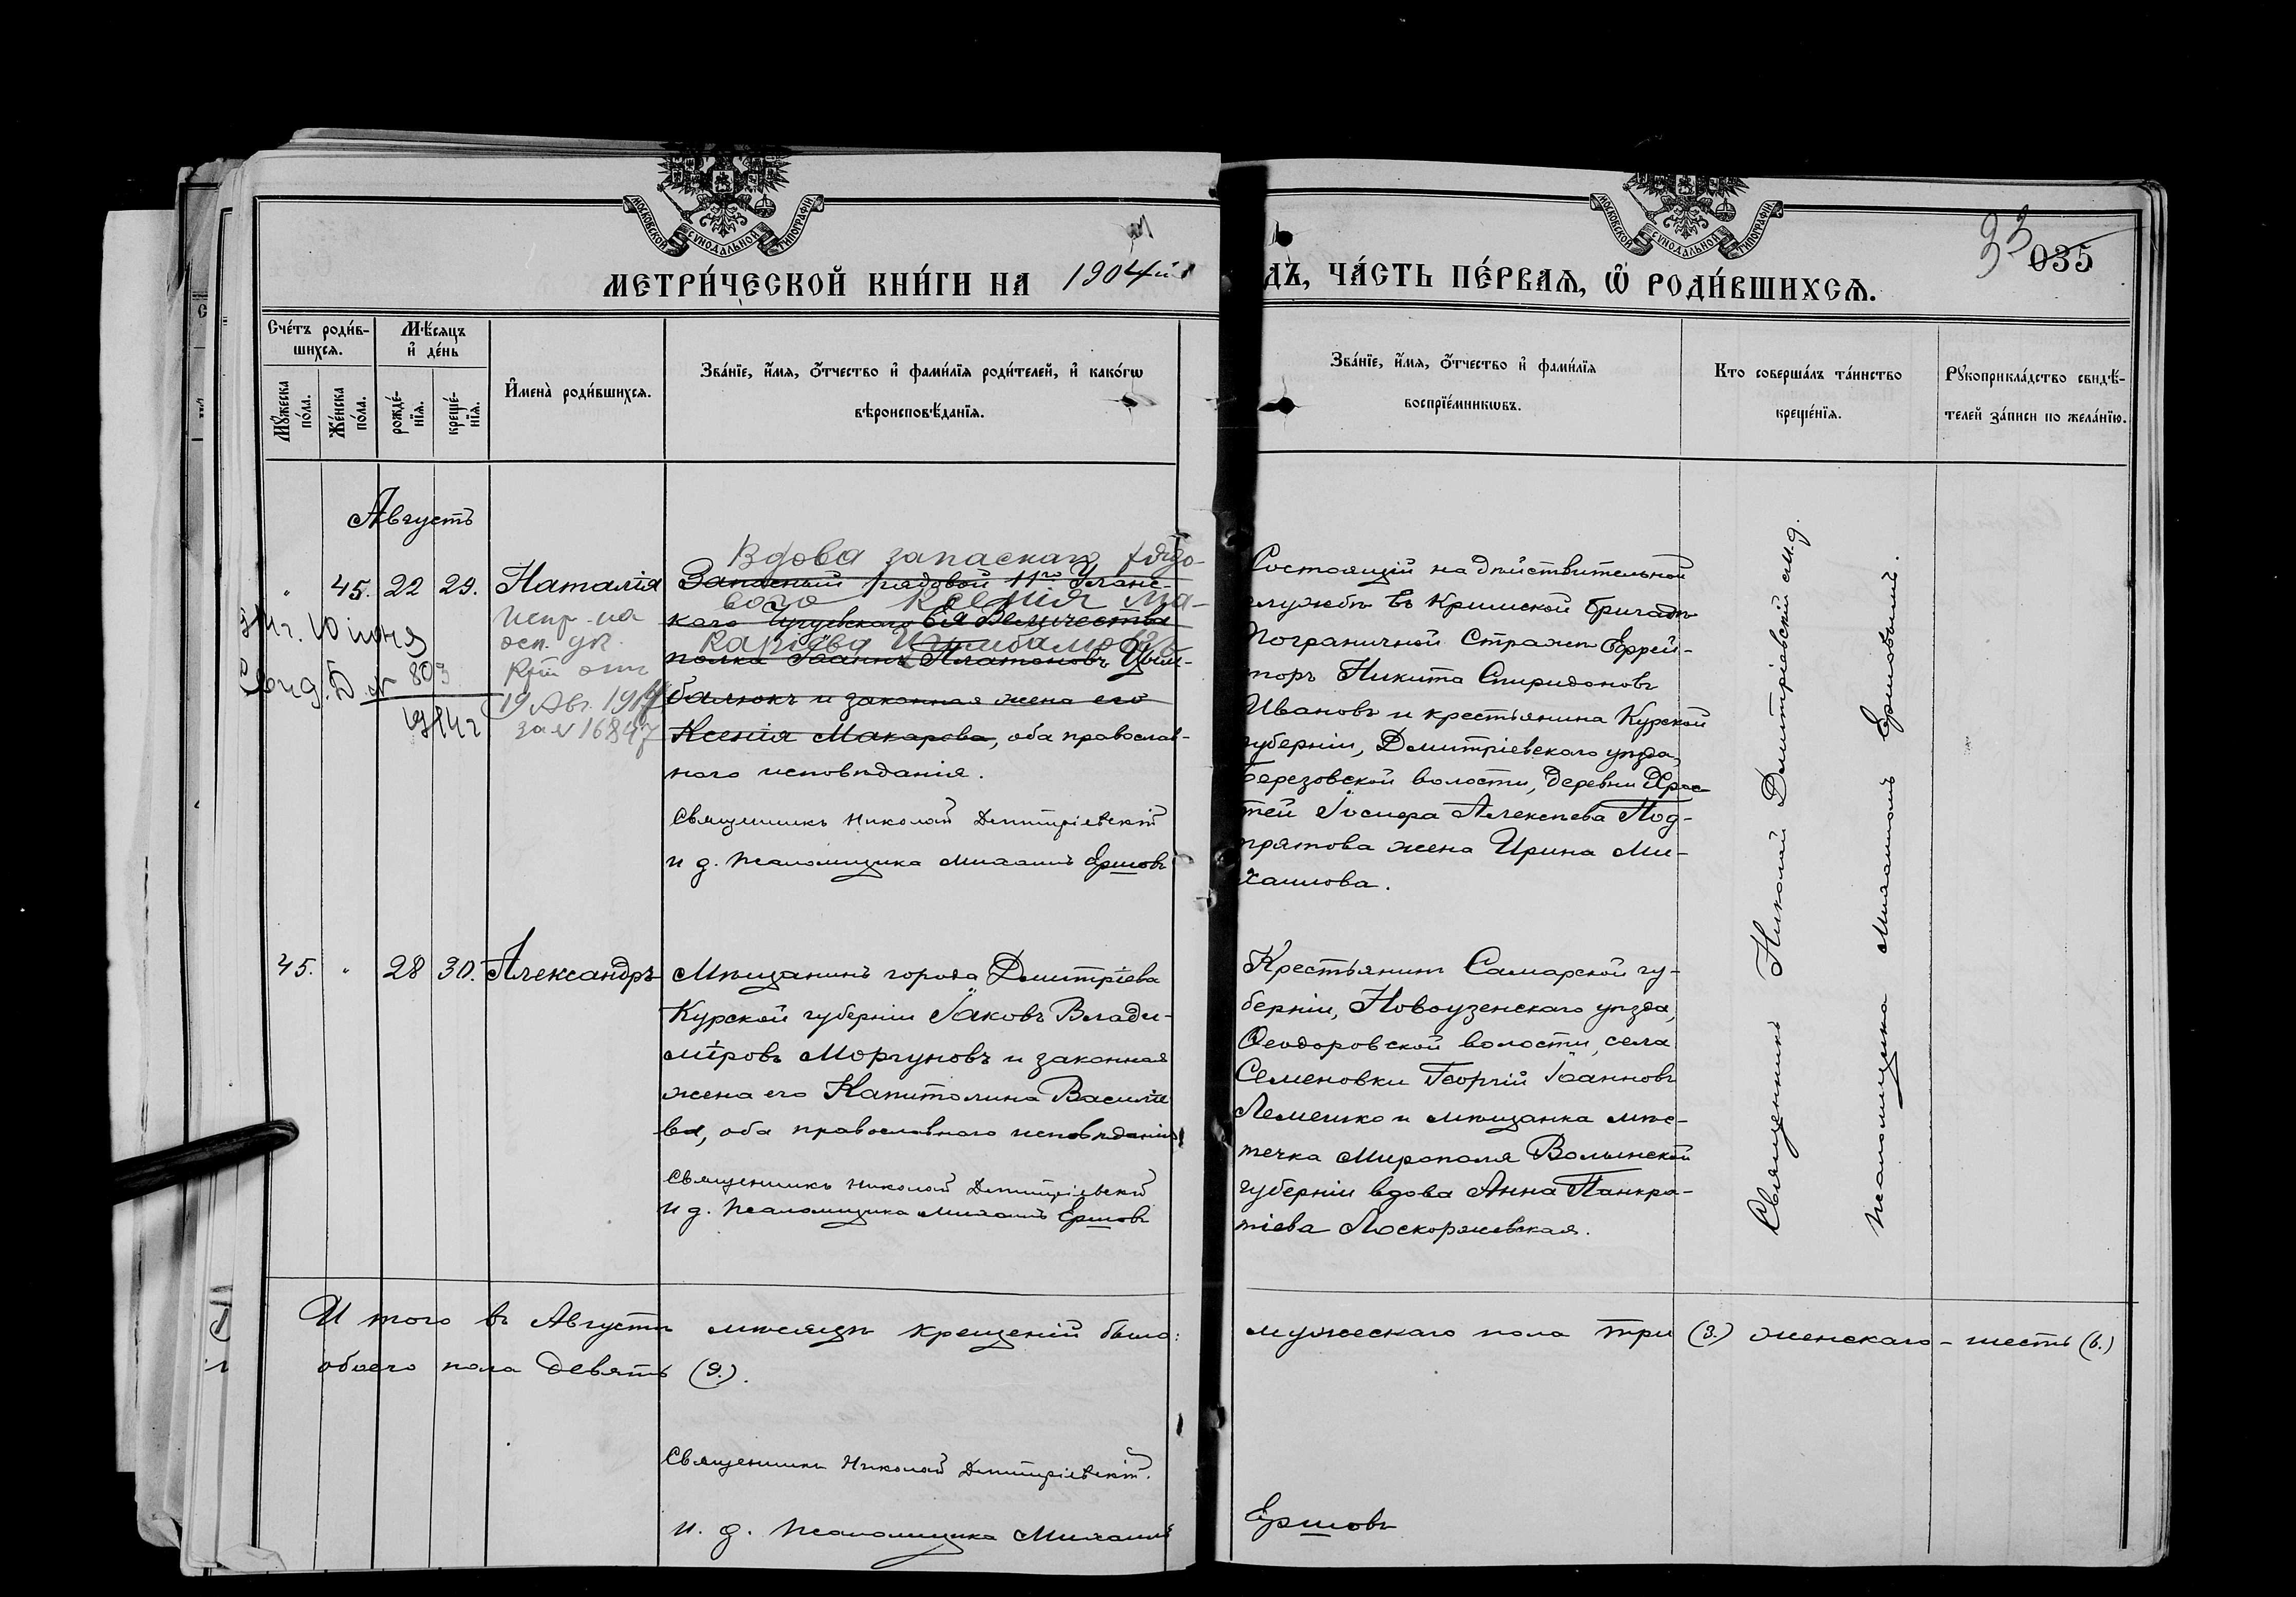 МОСКОВСКОЙ СѴНОДАЛЬНОЙ ТИПОГРАФІИ
МОСКОВСКОЙ СѴНОДАЛЬНОЙ ТИПОГРАФІИ
33
035
МЕТРИ́ЧЕСКОЙ КНИ́ГИ НА 1904й
ДЪ, ЧА́СТЬ ПЕ́РВАѦ, Ѽ РОДИ́ВШИХСѦ.
Сче́тъ роди́в-
шихсѧ.
Мꙋ́жеска по́ла.
Же́нска по́ла.
Мѣ́сѧцъ и҆ де́нь
рожде́-
нїѧ.
креще́-
нїѧ.
И҆мена̀ роди́вшихсѧ.
Зва́нїе, и҆́мѧ, ѻ҆́тчество и҆ фами́лїѧ роди́телей, и҆ како́гѡ
вѣроисповѣ́данїѧ.
Зва́нїе, и҆́мѧ, ѻ҆́тчество и҆ фами́лїѧ
воспрїе́мникѡвъ.
Кто соверша́лъ та́инство
креще́нїѧ.
Рꙋкоприкла́дство свидѣ́-
телей за́писи по жела́нїю.
Августъ
" 45. 22 29. Наталія
Испр. на
осн. ук.
19 Авг. 1914
за № 16847
Іюня
Д. № 803
1914 г
Вдова запаснаго рядо-
ваго Ксенія Ма-
карієва Цымбалюкъ
Запасный рядовой 11го Уланс-
каго Чугуевскаго Ея Величества
полка Іоаннъ Платоновъ Цым-
балюкъ и законная жена его
Ксенія Макарова, оба православ-
наго исповѣданія.
Священникъ Николай Дмитріевскій
и д. псаломщика Михаилъ Ершовъ
Состоящій на дѣйствительной
службѣ въ Крымской бригадѣ
Пограничной Стражи Ефрей-
торъ Никита Спиридоновъ
Ивановъ и крестьянина Курской
губерніи, Дмитріевскаго уѣзда,
Березовской волости, деревни
Іосифа Алексѣева Под-
прятова жена Ирина Ми-
хаилова.
45. " 28 30. Александръ
Мѣщанинъ города Дмитріева
Курской губерніи Іаковъ Влади-
міровъ Моргуновъ и законная
жена его Капитолина Василіе
ва, оба православнаго исповѣданія
Священникъ Николай Дмитріевскій
и д. псаломщика Михаилъ Ершовъ
Крестьянинъ Самарской гу-
берніи, Новоузенскаго уѣзда,
Ѳеодоровской волости, села
Семеновки Георгій Іоанновъ
Лемешко и мѣщанка мѣс-
течка Мирополя Волынской
губерніи вдова Анна Панкра-
тіева Лоскоржевская.
Священникъ Николай Дмитріевскій и.д.
псаломщика Михаилъ Ершовый.
И того въ Августѣ мѣсяцѣ крещеній было: мужескаго пола три (3.) женскаго - шесть (6.)
обоего пола девять (9.).
Священникъ Николай Дмитріевскій.
и. д. псаломщика Михаилъ Ершовъ